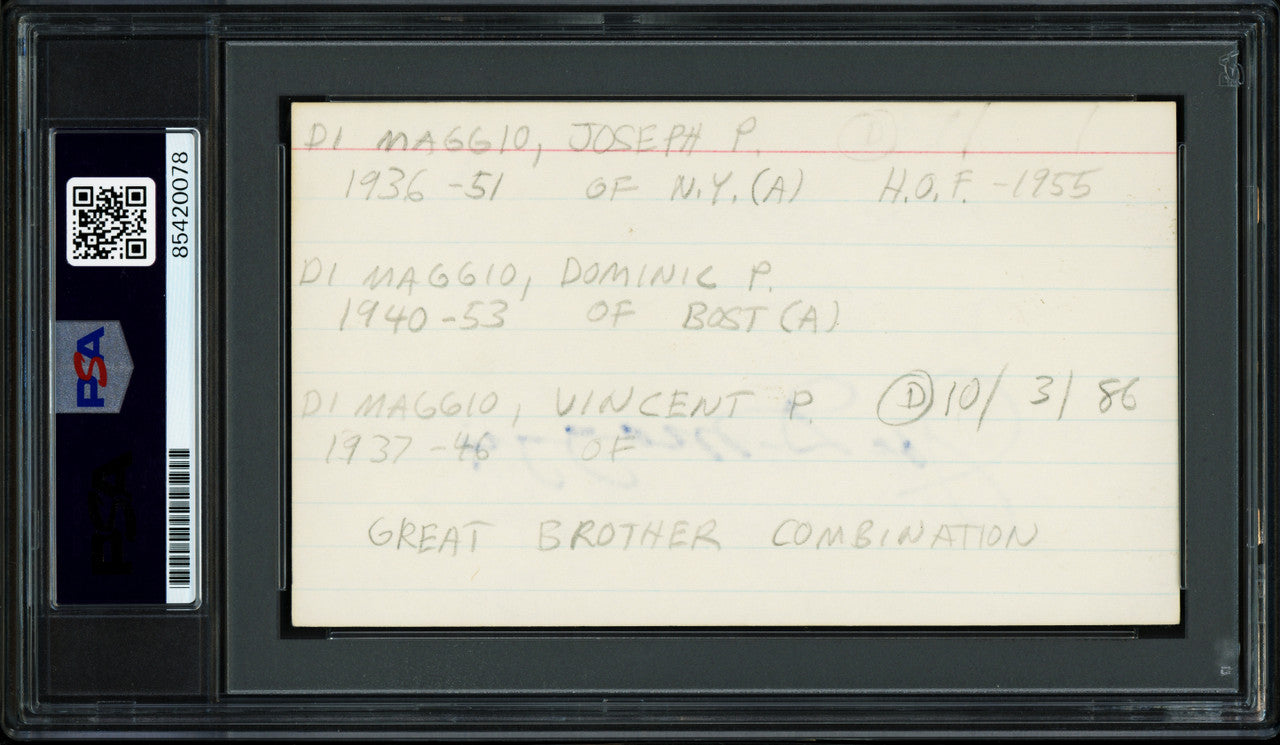 DI MAGGIO, JOSEPH P. (D) / /
1936-51 OF N.Y. (A) H.O.F. -1955
DI MAGGIO, DOMINIC P.
1940-53 OF BOST (A)
DI MAGGIO, VINCENT P. (D) 10/ 3/ 86
1937-46 OF
GREAT BROTHER COMBINATION
85420078
PSA
PSA